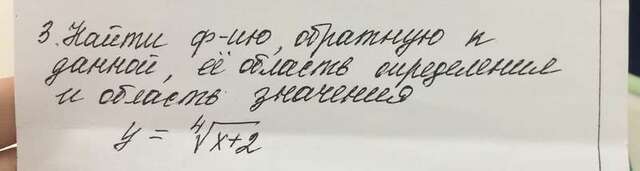 3. Найти ф-ию, обратную к
данной, её область определения
и область значения
y = ⁴√x+2